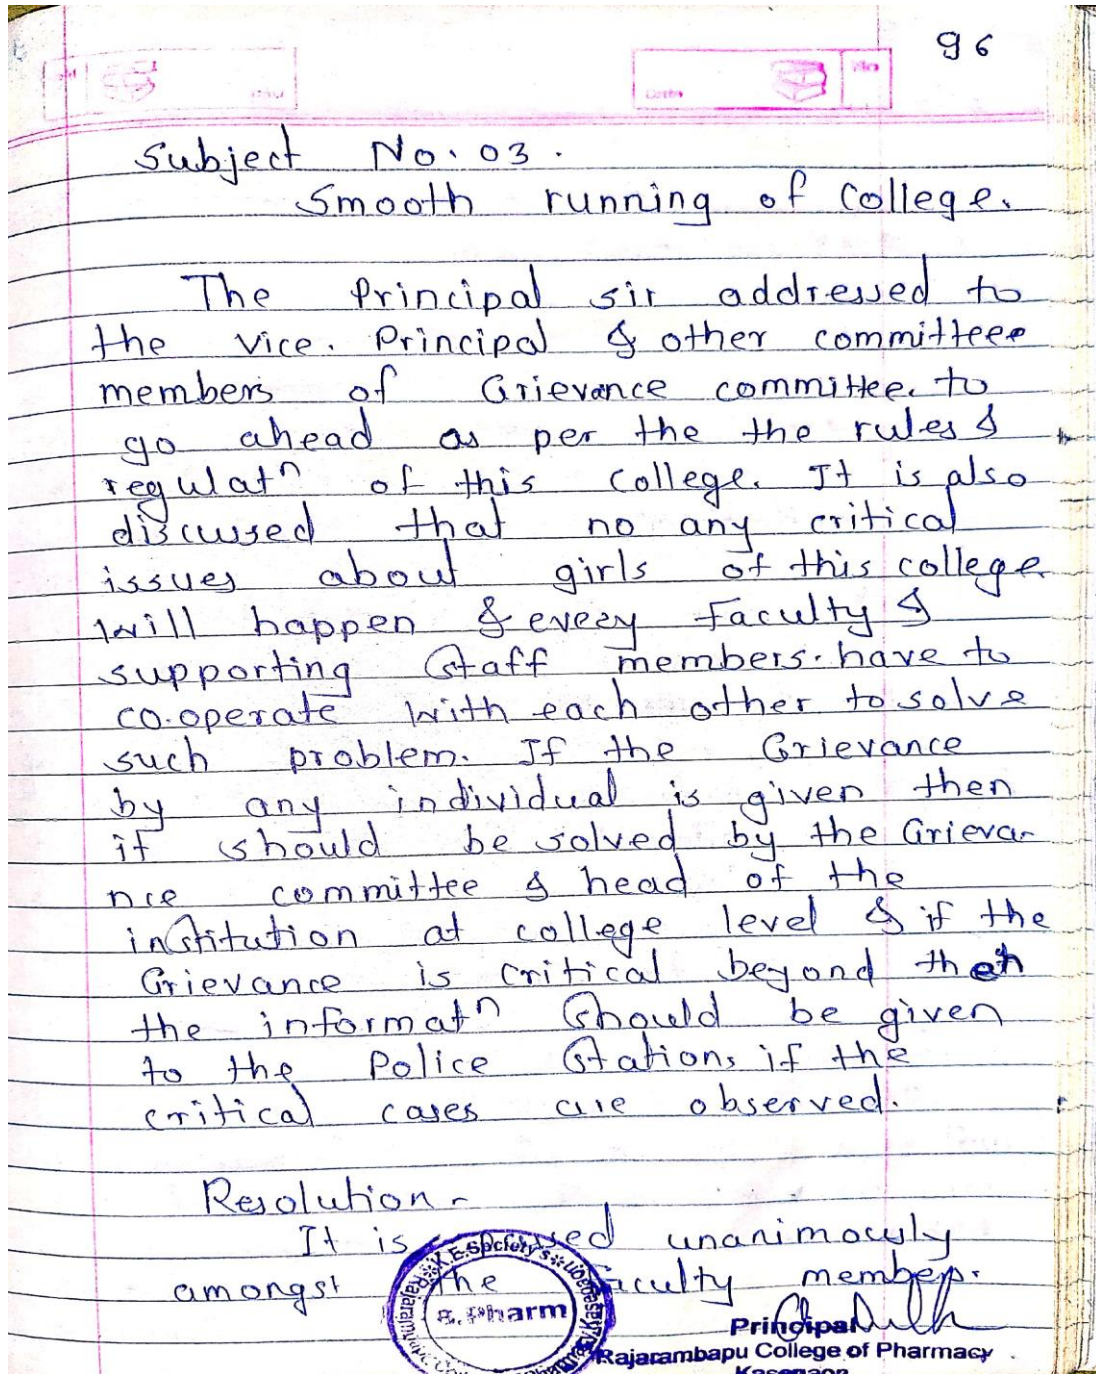 96
Subject No. 03.
Smooth running of College.
The Principal sir addressed to
the vice. Principal & other committeee
members of Grievance committee. to
go ahead as per the the rules &
regulatn of this college. It is also
discussed that no any critical
issues about girls of this college
will happen & every faculty &
supporting staff members. have to
co.operate with each other to solve
such problem. If the Grievance
by any individual is given then
it should be solved by the Grieva-
nce committee & head of the
institution at college level & if the
Grievance is critical beyond that
the informatn should be given
to the Police stations if the
critical cases are observed.
Resolution -
It is unanimously
amongst the faculty members.
K.E. Society's
B. Pharm
Principal
Rajarambapu College of Pharmacy
Kasegaon